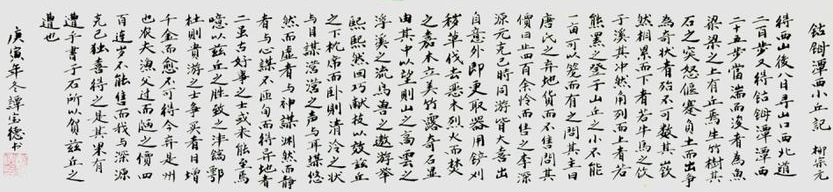 鈷鉧潭西小丘記 柳宗元
得西山後八日尋山口西北道
二百步又得鈷鉧潭潭西
二十五步當湍而浚者為魚
梁梁之上有丘焉生竹樹其
石之突怒偃蹇負土而出爭
為奇狀者殆不可數其嶔
然相累而下者若牛馬之飲
于溪其沖然角列而上者若
熊羆之登于山丘之小不能
一畝可以籠而有之問其主曰
唐氏之弃地貨而不售問其
價曰止四百余怜而售之李深
源元克己時同游皆大喜出
自意外即更取器用鏟刈
穢草伐去惡木烈火而焚
之嘉木立美竹露奇石显
由其中以望則山之高雲之
浮溪之流鳥獸之遨游舉
熙熙然回巧献技以效兹丘
之下枕席而臥則清泠之狀
与目謀瀯瀯之声与耳謀悠
然而虛者与神謀渊然而靜
者与心謀不匝旬而得异地者
二虽古好事之士或未能至焉
噫以兹丘之胜致之灃鎬鄠
杜則貴游之士爭买者日增
千金而愈不可得今弃是州
也农夫漁父過而陋之價四
百連岁不能售而我与深源
克己独喜得之是其果有
遭乎書于石所以賀兹丘之
遭也
庚寅年冬譚宝德书